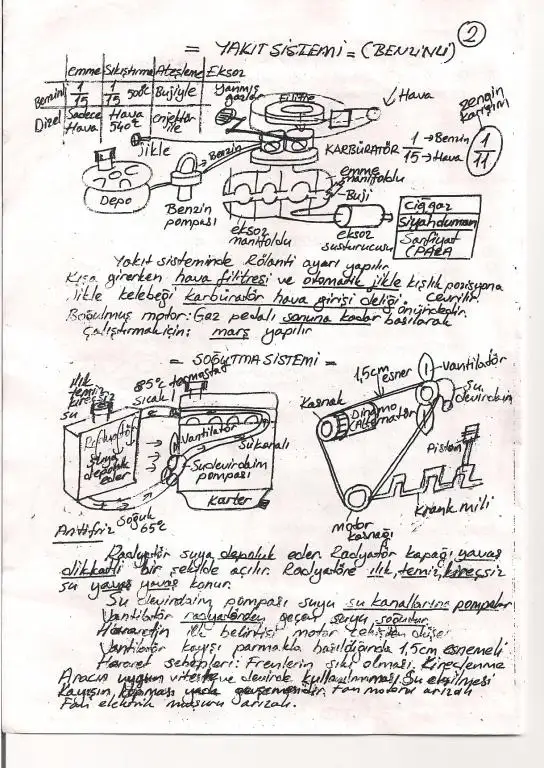 2
= YAKIT SİSTEMİ = (BENZİNLİ)
emme Sıkıştırma Ateşleme Eksoz
Benzin 1/15 1/15 500°C Bujiyle Yanmış gazlar
Dizel Sadece Hava Hava 540°C enjektör ile
Filitre
Hava
zengin karışım
Jikle
Benzin
KARBÜRATÖR 1 → Benzin
15 → Hava
1/11
Depo
Benzin pompası
emme manifoldu
Buji
eksoz manifoldu
eksoz susturucusu
Çiğ gaz
Siyah duman
Sarfiyat
(PARA
Yakıt sisteminde Rölanti ayarı yapılır
Kışa girerken hava filitresi ve otomatik jikle kışlık pozisyona
çevrilir.
Jikle kelebeği karbüratör hava girişi deliği önündedir.
Boğulmuş motor: Gaz pedalı sonuna kadar basılarak
Çalıştırmak için: marş yapılır
= SOĞUTMA SİSTEMİ =
ılık temiz kireçsiz su
85°C termostat
sıcak
Radyatör
suya depoluk eder
Vantilatör
Su kanalı
Su devirdaim pompası
Karter
Soğuk 65°C
Antifriz
1,5cm esner
Vantilatör
Su devirdaim
Kasnak
Dinamo
(Alternatör)
Piston
Krank mili
motor kasnağı
Radyatör suya depoluk eder. Radyatör kapağı yavaş
dikkatli bir şekilde açılır. Radyatöre ılık, temiz, kireçsiz
su yavaş yavaş konur.
Su devirdaim pompası suyu su kanallarına pompalar
Vantilatör radyatörden geçen suyu soğutur.
Hararetin ilk belirtisi motor çekişten düşer
Vantilatör kayışı parmakla basıldığında 1,5cm esnemeli
Hararet sebepleri: Frenlerin sıkı olması, Kireçlenme
Aracın uygun viteste ve devirde kullanılmaması, Su eksilmesi
Kayışın kopması yada gevşemesidir, fan motoru arızalı
Fan elektrik arızalı.